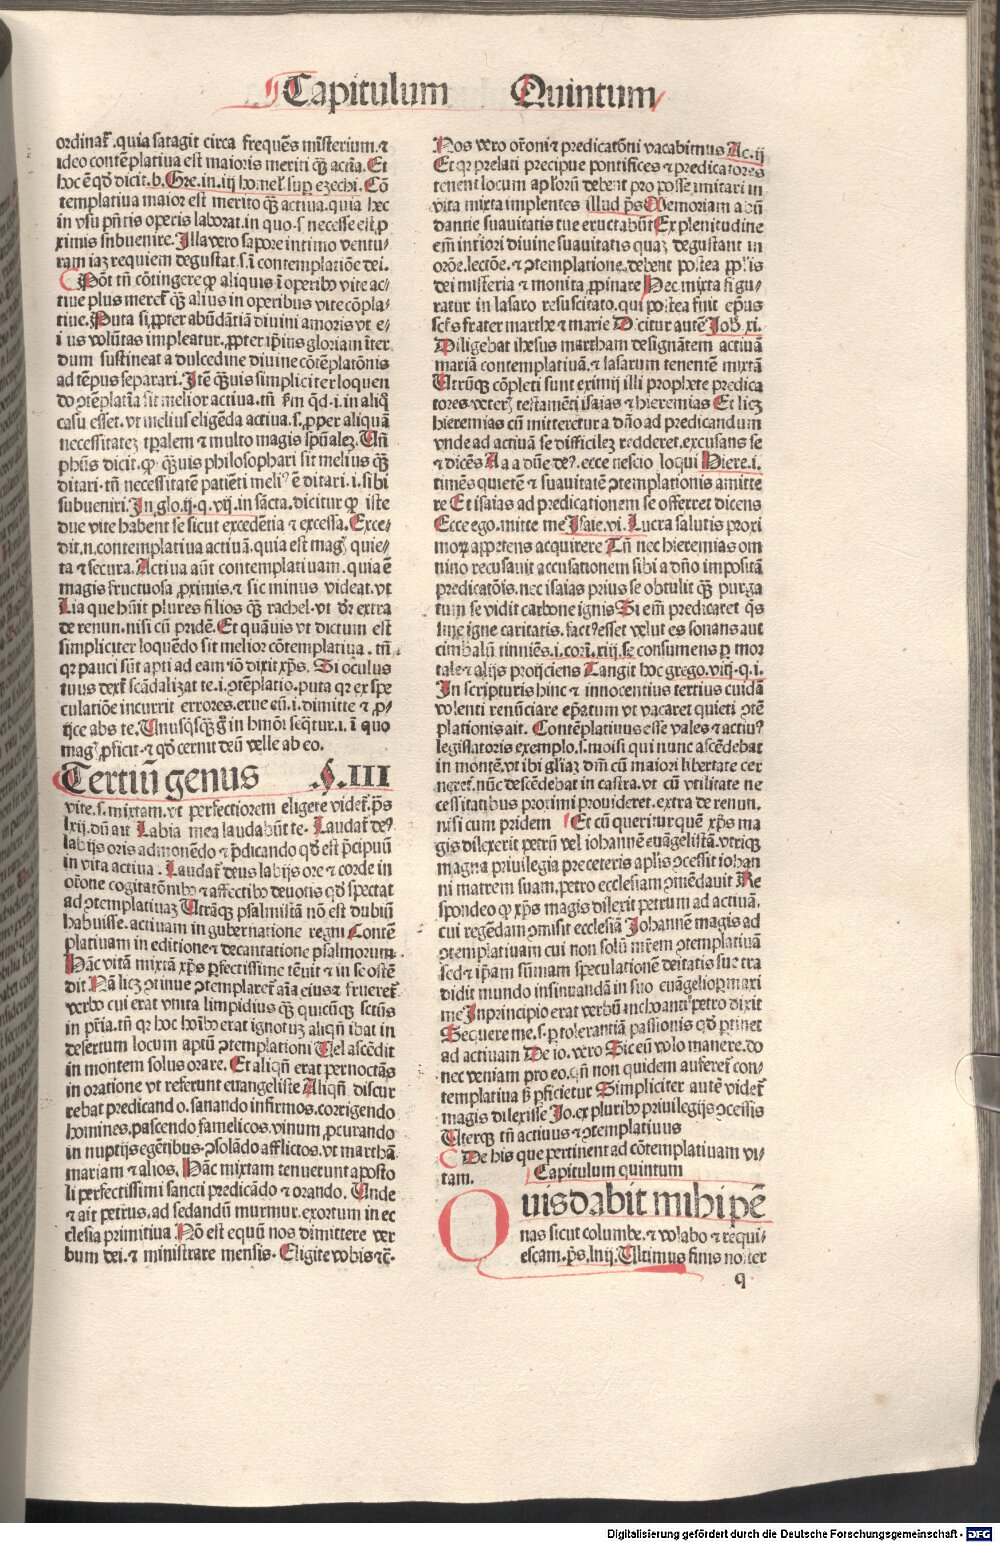 Capitulum Quintum
ordinat᷑.quia satagit circa frequēs mīsterium.⁊
ideo contēplatiua est maioris meriti q̄ꝫ actīa. Et
hoc ē qd̄ dicit.b. Gre.in.iij homel᷑.suꝑ ezechi. Cō
templatiua maior est merito q̄ꝫ actiua.quia hec
in vsu pn̄tis operis laborat.in quo.s necesse est ꝓ
ximis subuenire. Illa vero sapore intimo ventu/
ram iaꝫ requiem degustat.s.ī contemplatiōe dei.
Pōt tn̄ cōtingere ꝙ aliquis ī operibꝰ vite ac/
tiue plus meret᷑ q̄ꝫ alius in operibus vite cōpla/
tiue. Puta si ꝓpter abūdātiā diuini amoris vt e/
i us volūtas impleatur.ꝓpter ip̄ius gloriam īter
dum sustineat a dulcedine diuine cōtēplatōnis
ad tēpus separari. Itē q̄ꝫuis simpliciter loquen
do ꝯtēplatīa sit melior actiua.tn̄ s̄m qd̄.i.in aliq̄
casu esset.vt melius eligēda actiua.s.ꝓper aliquā
necessitateꝫ tp̄alem ⁊ multo magis spūaleꝫ. Un̄
phūs dicit.ꝙ q̄ꝫuis philosophari sit melius q̄ꝫ
ditari.tn̄ necessitatē patiēti meliꝰ ē ditari.i.sibi
subueniri. In glo.ij.q.vij.in sācta.dicitur ꝙ iste
due vite habent se sicut excedētia ⁊ excessa. Exce/
dit.n.contemplatiua actiuā.quia est magꝭ quie/
ta ⁊ secura. Actiua aūt contemplatiuam.quia ē
magis fructuosa ꝓximis.⁊ sic minus videat.vt
Lia que hūit plures filios q̄ꝫ rachel.vt dr̄ extra
de renun.nisi cū pridē. Et quāuis vt dictum est
simpliciter loquēdo sit melior cōtemplatiua.tn̄.
qꝛ pauci sūt apti ad eam iō dixit xp̄s. Si oculus
tuus dext᷑ scādalizat te.i.ꝯtēplatio.puta qꝛ ex spe
culatiōe incurrit errores.erue eū.i.dimitte ⁊ ꝓ/
ijce abs te. Unusq̄sq̄ꝫ g̊ in hmōi seq̄tur.i.ī quo
magꝭ ꝓficit.⁊ qd̄ cernit deū velle ab eo.
Tertiū genus .§.III
vite.s.mixtam.vt perfectiorem eligere videt᷑.ps̄
lxij.dū ait Labia mea laudabūt te. Laudat᷑ deꝰ
labijs oris admonēdo ⁊ p̄dicando qd̄ est p̄cipuū
in vita actiua. Laudat᷑ deus labijs ore ⁊ corde in
or̄one cogitatōnibꝰ ⁊ affectibꝰ deuotis qd̄ spectat
ad ꝯtemplatiuaꝫ Utrāq̄ꝫ psalmistā nō est dubiū
habuisse.actiuam in gubernatione regni Contē
platiuam in editione ⁊ decantatione psalmorum.
Hāc vitā mixtā xp̄s ꝑfectissime tēuit ⁊ in se ostē
dit Nā licꝫ ꝯtinue ꝯtemplaret᷑ aīa eius ⁊ frueret᷑
verbo cui erat vnita limpidius q̄ꝫ quicūqꝫ sctūs
in pr̄ia.tn̄ qꝛ hoc hoībꝰ erat ignotuꝫ aliqn̄ ibat in
desertum locum aptū ꝯtemplationi Uel ascēdit
in montem solus orare. Et aliqn̄ erat pernoctās
in oratione vt referunt euangeliste Aliqn̄ discur
rebat predicand o.sanando infirmos.corrigendo
homines.pascendo famelicos.vinum ꝓcurando
in nuptijs egētibus.ꝯsolādo afflictos.vt marthā
mariam ⁊ alios. Hāc mixtam tenuerunt aposto
li perfectissimi sancti predicādo ⁊ orando. Unde
⁊ ait petrus.ad sedandū murmur.exortum in ec
clesia primitiua Nō est equū nos dimittere ver
bum dei.⁊ ministrare mensis. Eligite vobis ⁊c̄.
Nos vero or̄oni ⁊ predicatōni vacabimus Ac.ij
Et qꝛ prelati precipue pontifices ⁊ predicatores
tenent locum apl̄orū debent pro posse imitari in
vita mixta implentes illud ps̄ Memoriam abū
dantie suauitatis tue eructabūt Ex plenitudine
em̄ intíori diuine suauitatis quaꝫ degustant in
orōe.lectōe.⁊ ꝯtemplatione.debent postea ꝓpl̄is
dei misteria ⁊ monita ꝓpinare Hec mixta figu/
ratur in lasaro resuscitato.qui postea fuit ep̄us
sctūs frater marthe ⁊ marie Dicitur autē Joh.xi.
Diligebat ihesus martham designātem actiuā
mariā contemplatiuā.⁊ lasarum tenentē mixtā
Utrūq̄ꝫ cōpleti sunt eximij illi prophete predica
tores veterꝭ testamēti isaias ⁊ hieremias Et licꝫ
hieremias cū mitteretur a dn̄o ad predicandum
vnde ad actiuā se difficileꝫ redderet.excusans se
⁊ dicēs A a a dn̄e deꝰ.ecce nescio loqui Hiere.i.
timēs quietē ⁊ suauitatē ꝯtemplationis amitte
re Et isaias ad predicationem se offerret dicens
Ecce ego.mitte me Isaie.vi. Lucra salutis proxi
moꝝ appetens acquirere Tn̄ nec hieremias om
nino recusauit accusationem sibi a dn̄o impositā
predicatōis.nec isaias prius se obtulit q̄ꝫ purga
tum se vidit carbone ignis Si em̄ predicaret q̄s
sine igne caritatis.factꝰ esset velut es sonans aut
cimbalū tinniēs.i.cori.xiij.se consumens ꝑ mor
tale ⁊ alijs proijciens Tangit hoc grego.viij.q.i.
In scripturis hinc ⁊ innocentius tertius cuidā
volenti renūciare ep̄atum vt vacaret quieti ꝯtē
plationis ait. Contēplatiuus esse vales ⁊ actiuꝰ
legislatoris exemplo.s.moisi qui nunc ascēdebat
in montē.vt ibi gl̄iaꝫ dn̄i cū maiori libertate cer
neret᷑.nūc descēdebat in castra.vt cū vtilitate ne
cessitatibus proximi prouideret.extra de renun.
nisi cum pridem Et cū queritur quē xp̄s ma
gis dilexerit petrū vel iohannē euāgelistā.vtriqꝫ
magna priuilegia preceteris apl̄is ꝯcessit iohan
ni matrem suam.petro ecclesiam ꝯmēdauit Re
spondeo ꝙ xp̄s magis dilexit petrum ad actiuā.
cui regēdam ꝯmisit ecclesiā Johannē magis ad
ꝯtemplatiuam cui non solū mr̄em ꝯtemplatiuā
sed ⁊ ip̄am sūmam speculationē deitatis sue tra
didit mundo insinuandā in suo euāgelio ꝑ maxi
me In principio erat verbū inchoantiꝰ petro dixit
Sequere me.s.ꝑ tolerantiā passionis qd̄ ꝑtinet
ad actiuam De io.vero Sic eū volo manere.do
nec veniam pro eo.qn̄ non quidem auferet᷑ con/
templatiua sꝫ ꝑficietur Simpliciter autē videt᷑
magis dilexisse Jo.ex pluribꝰ priuilegijs ꝯcessis
Uterqꝫ tn̄ actiuus ⁊ ꝯtemplatiuus
De his que pertinent ad cōtemplatiuam vi/
tam. Capitulum quintum
Quis dabit mihi pē
nas sicut columbe.⁊ volabo ⁊ requi/
escam.ps̄.liiij. Ultimus finis noster
q
Digitalisierung gefördert durch die Deutsche Forschungsgemeinschaft - DFG